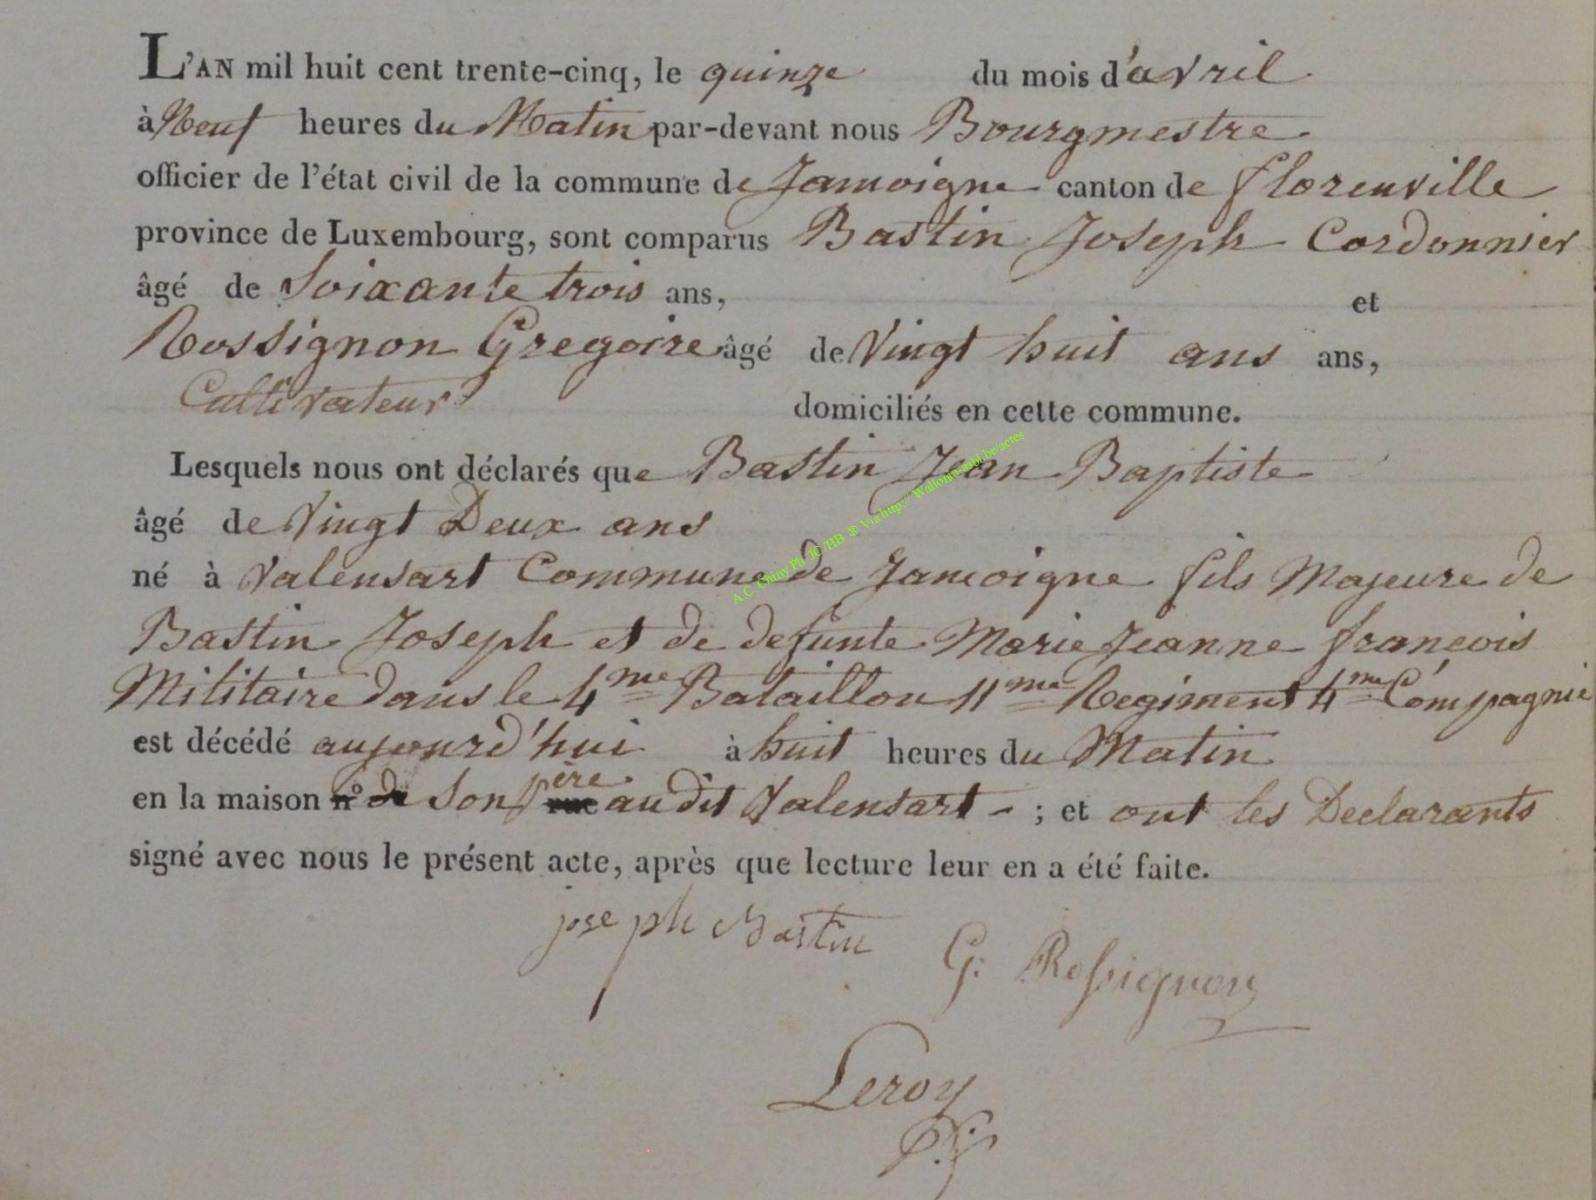 L'AN mil huit cent trente-cinq, le quinze du mois d'avril
à Neuf heures du Matin par-devant nous Bourgmestre
officier de l'état civil de la commune de Jamoigne canton de florenville
province de Luxembourg, sont comparus Bastin Joseph Cordonnier
âgé de Soixante trois ans, et
Rossignon Gregoire âgé de Vingt huit ans ans,
Cultivateur domiciliés en cette commune.
Lesquels nous ont déclarés que Bastin Jean Baptiste
âgé de Vingt Deux ans
né à Valensart Commune de Jamoigne fils Majeure de
Bastin Joseph et de defunte Marie Jeanne françois
Militaire dans le 4me Bataillon 11me Regiment 4me Compagnie
est décédé aujourd'hui à huit heures du Matin
en la maison n° de Son père rue au dit Valensart - ; et ont les Declarants
signé avec nous le présent acte, après que lecture leur en a été faite.
joseph Bastin
G: Rossignon
Leroy